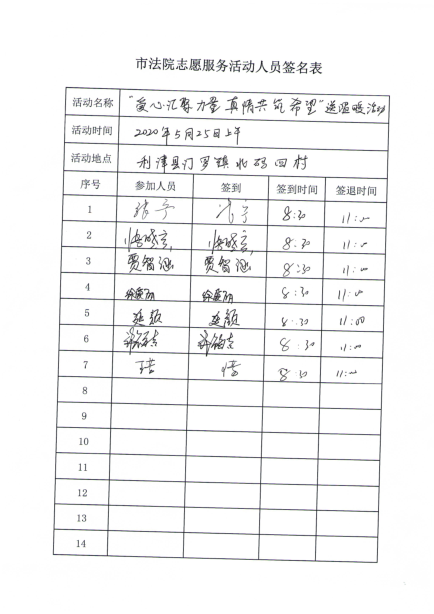 市法院志愿服务活动人员签名表
活动名称 “爱心汇聚力量 真情共筑希望”送温暖活动
活动时间 2020年5月25日上午
活动地点 利津县汀罗镇北码四村
序号 参加人员 签到 签到时间 签退时间
1 8:30 11:00
2 8:30 11:00
3 贾智涵 贾智涵 8:30 11:00
4 8:30 11:00
5 8:30 11:00
6 8:30 11:00
7 8:30 11:00
8
9
10
11
12
13
14